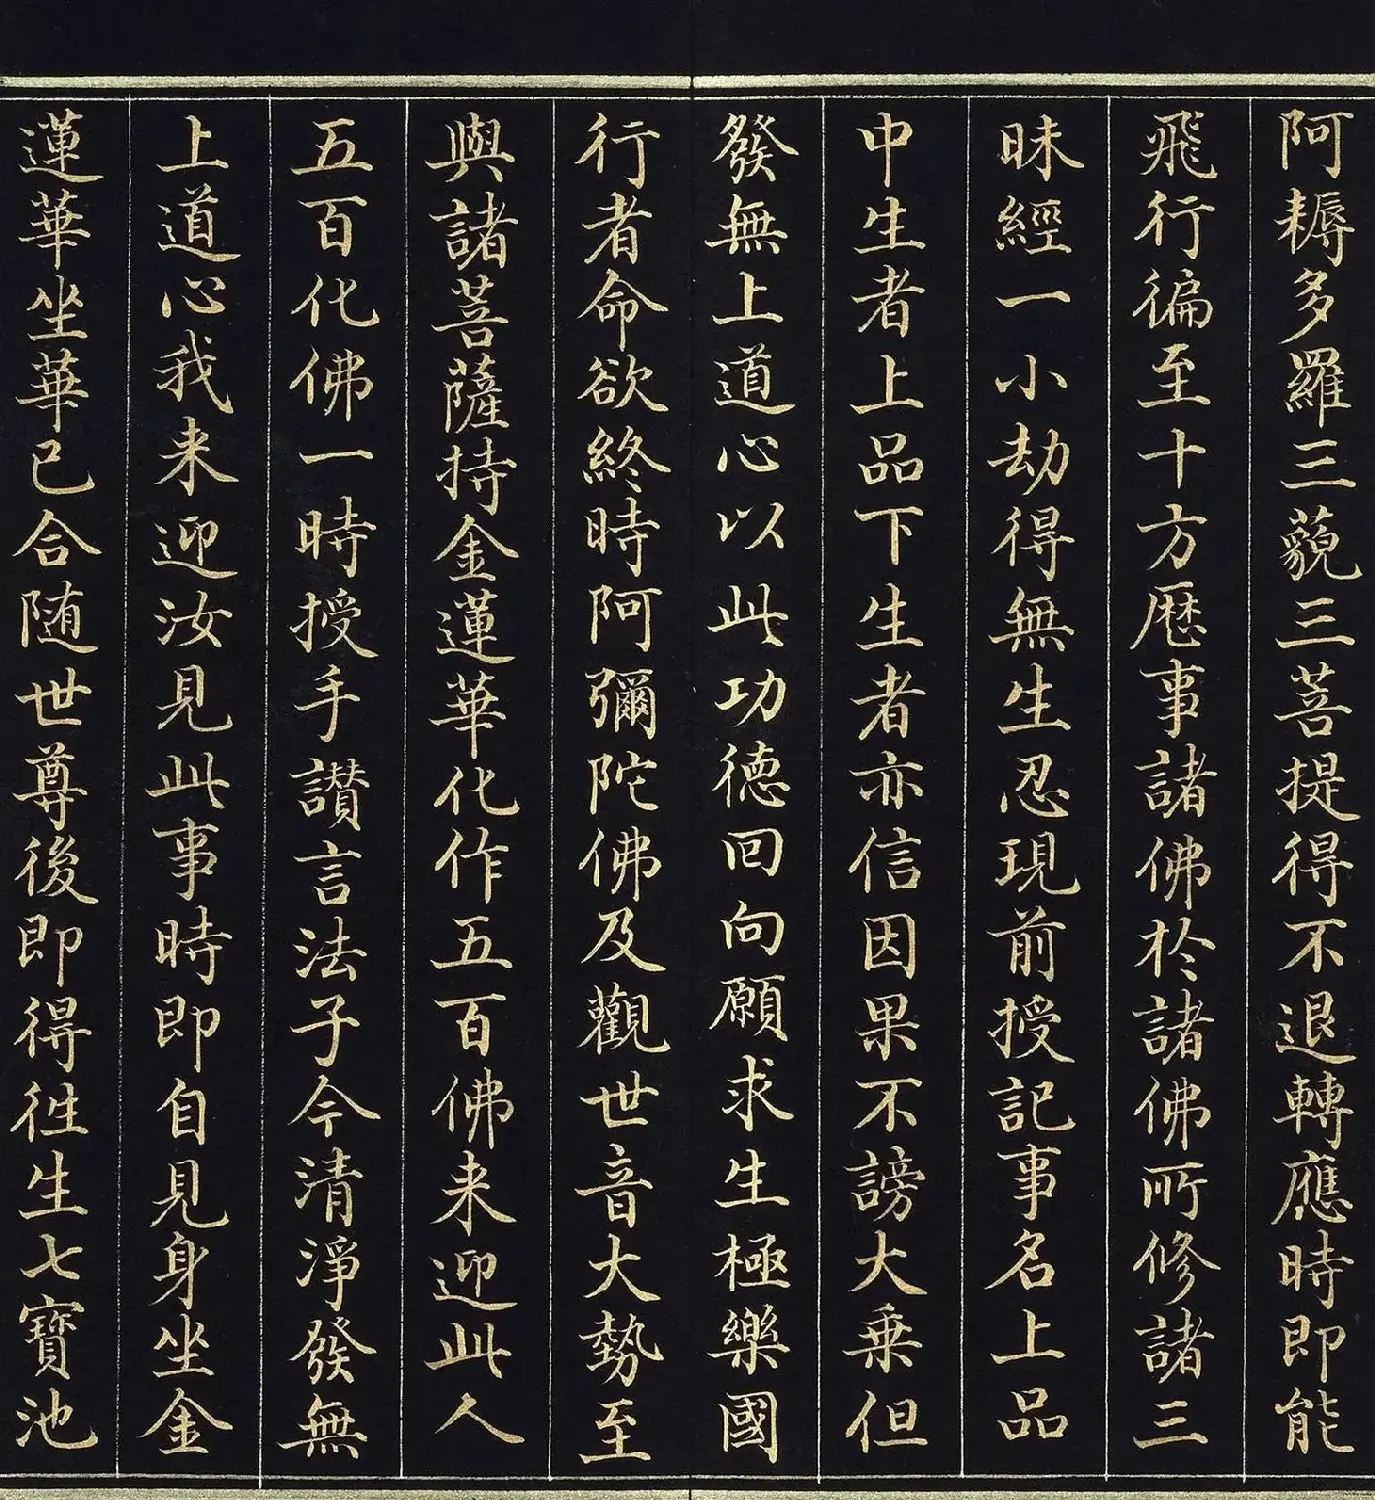 阿耨多羅三藐三菩提得不退轉應時即能
飛行徧至十方歷事諸佛於諸佛所修諸三
昧經一小劫得無生忍現前授記事名上品
中生者上品下生者亦信因果不謗大乗但
發無上道心以此功德回向願求生極樂國
行者命欲終時阿彌陀佛及觀世音大勢至
與諸菩薩持金蓮華化作五百佛来迎此人
五百化佛一時授手讃言法子今清淨發無
上道心我来迎汝見此事時即自見身坐金
蓮華坐華已合随世尊後即得徃生七寶池